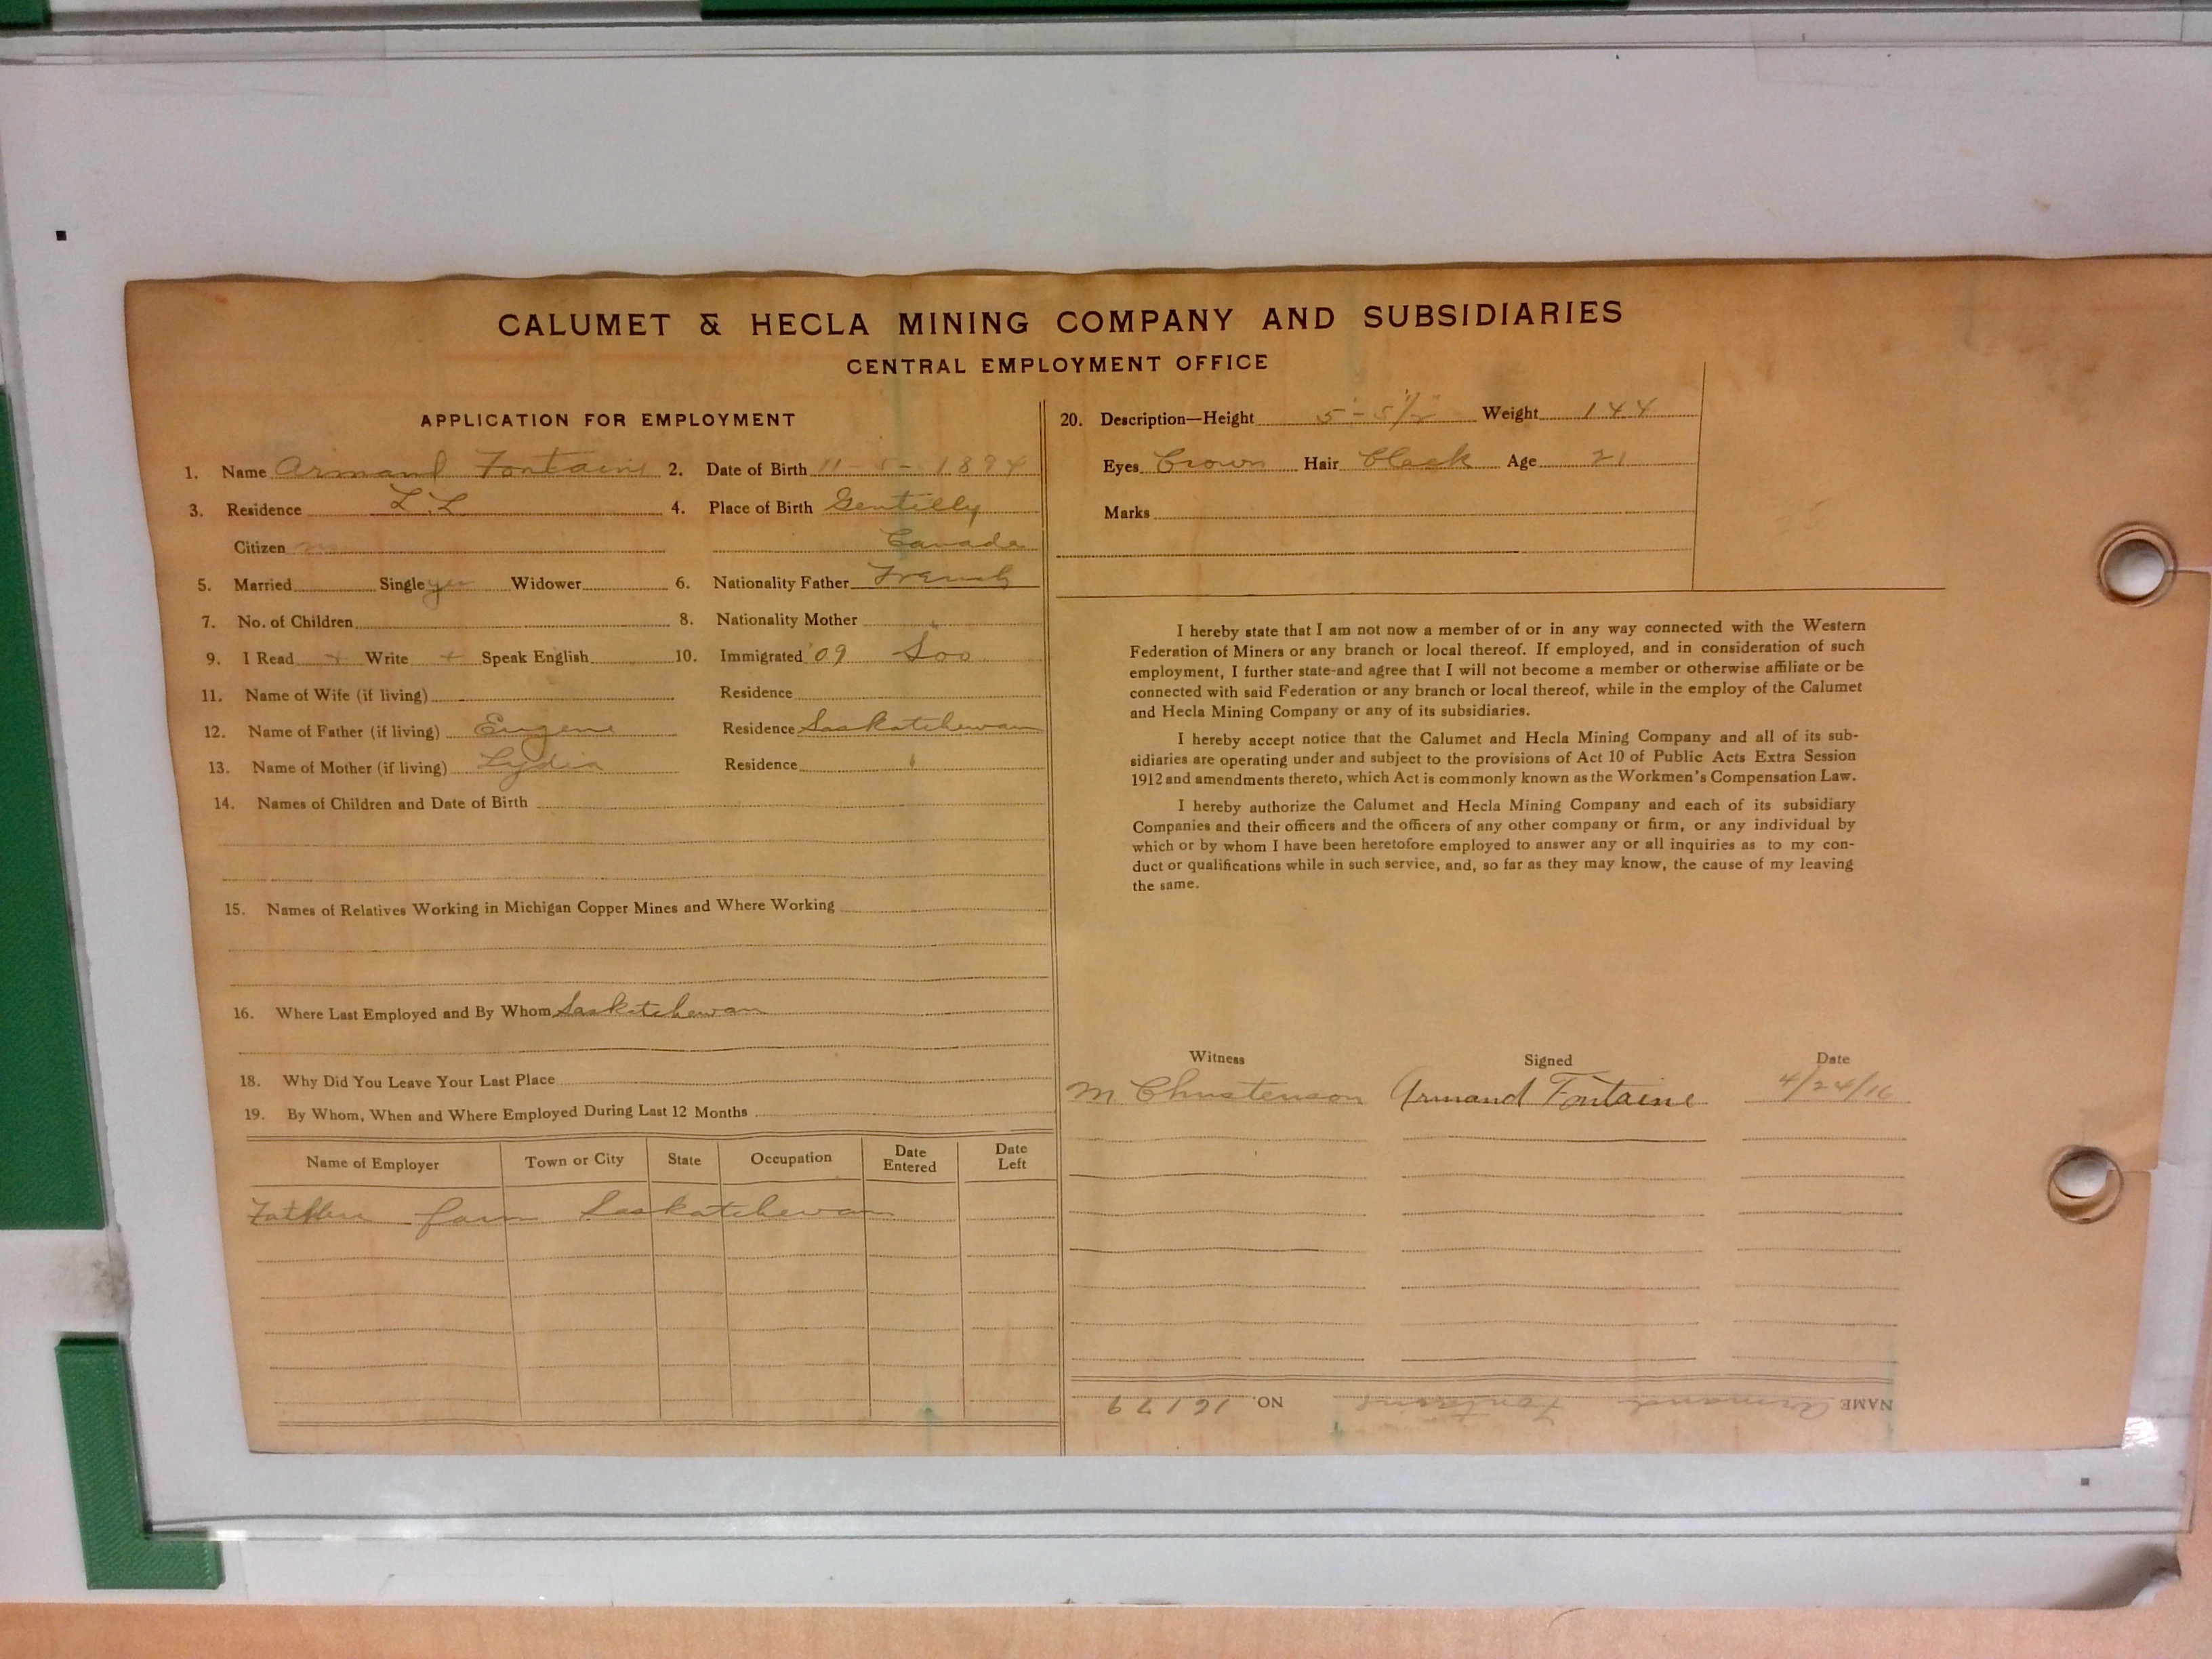 CALUMET & HECLA MINING COMPANY AND SUBSIDIARIES
CENTRAL EMPLOYMENT OFFICE
APPLICATION FOR EMPLOYMENT
1. Name Armand Fontaine 2. Date of Birth 11-5-1894
3. Residence L.L 4. Place of Birth Gentilly
Citizen Canada
5. Married Single yes Widower 6. Nationality Father French
7. No. of Children 8. Nationality Mother "
9. I Read + Write + Speak English 10. Immigrated '09 Soo
11. Name of Wife (if living) Residence
12. Name of Father (if living) Eugene Residence Saskatchewan
13. Name of Mother (if living) Lydia Residence "
14. Names of Children and Date of Birth
15. Names of Relatives Working in Michigan Copper Mines and Where Working
16. Where Last Employed and By Whom Saskatchewan
18. Why Did You Leave Your Last Place
19. By Whom, When and Where Employed During Last 12 Months
Name of Employer Town or City State Occupation Date Entered Date Left
Fathers farm Saskatchewan
20. Description—Height 5'-5 1/2" Weight 144
Eyes Brown Hair Black Age 21
Marks
I hereby state that I am not now a member of or in any way connected with the Western
Federation of Miners or any branch or local thereof. If employed, and in consideration of such
employment, I further state and agree that I will not become a member or otherwise affiliate or be
connected with said Federation or any branch or local thereof, while in the employ of the Calumet
and Hecla Mining Company or any of its subsidiaries.
I hereby accept notice that the Calumet and Hecla Mining Company and all of its sub-
sidiaries are operating under and subject to the provisions of Act 10 of Public Acts Extra Session
1912 and amendments thereto, which Act is commonly known as the Workmen's Compensation Law.
I hereby authorize the Calumet and Hecla Mining Company and each of its subsidiary
Companies and their officers and the officers of any other company or firm, or any individual by
which or by whom I have been heretofore employed to answer any or all inquiries as to my con-
duct or qualifications while in such service, and, so far as they may know, the cause of my leaving
the same.
Witness Signed Date
M Christenson Armand Fontaine 4/24/16
NAME Armand Fontaine NO. 16179